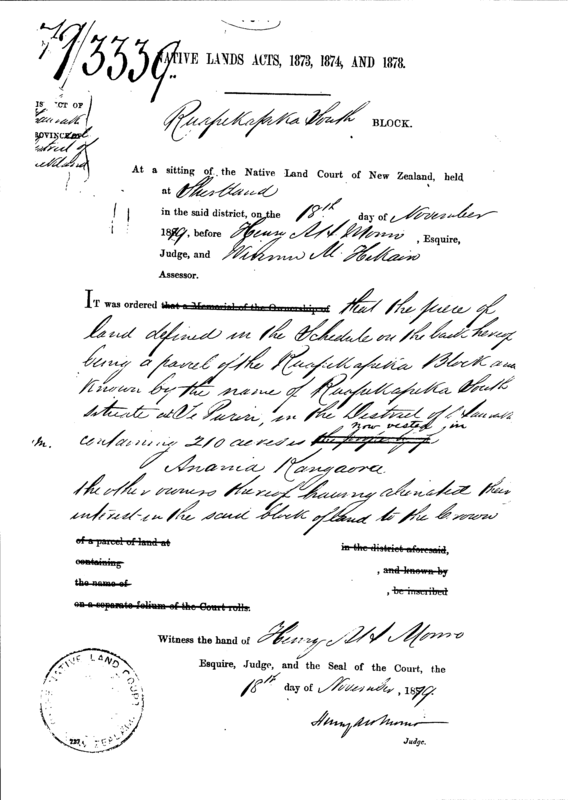 79/3339.
NATIVE LANDS ACTS, 1873, 1874, AND 1878.
Ruapekapeka South BLOCK.
CT OF
PROVINCE
District of
At a sitting of the Native Land Court of New Zealand, held
at Shortland
in the said district, on the 18th day of November
1879, before Henry A H Monro, Esquire,
Judge, and Wiremu M.
Assessor.
IT was ordered that a Memorial of the Ownership of that the piece of
land defined in the Schedule on the back hereof
being a parcel of the Ruapekapeka Block and
Known by the name of Ruapekapeka South
situate at Te Puru, in the District of
now vested in
containing 210 acres is
Anania Rangaora
the other owners thereof having alienated their
interest in the said block of land to the Crown
of a parcel of land at in the district aforesaid,
containing , and known by
the name of , be inscribed
on a separate folium of the Court rolls.
Witness the hand of Henry A H Monro
Esquire, Judge, and the Seal of the Court, the
18th day of November, 1879.
Henry A H Monro
Judge.
NATIVE LAND COURT
NEW ZEALAND